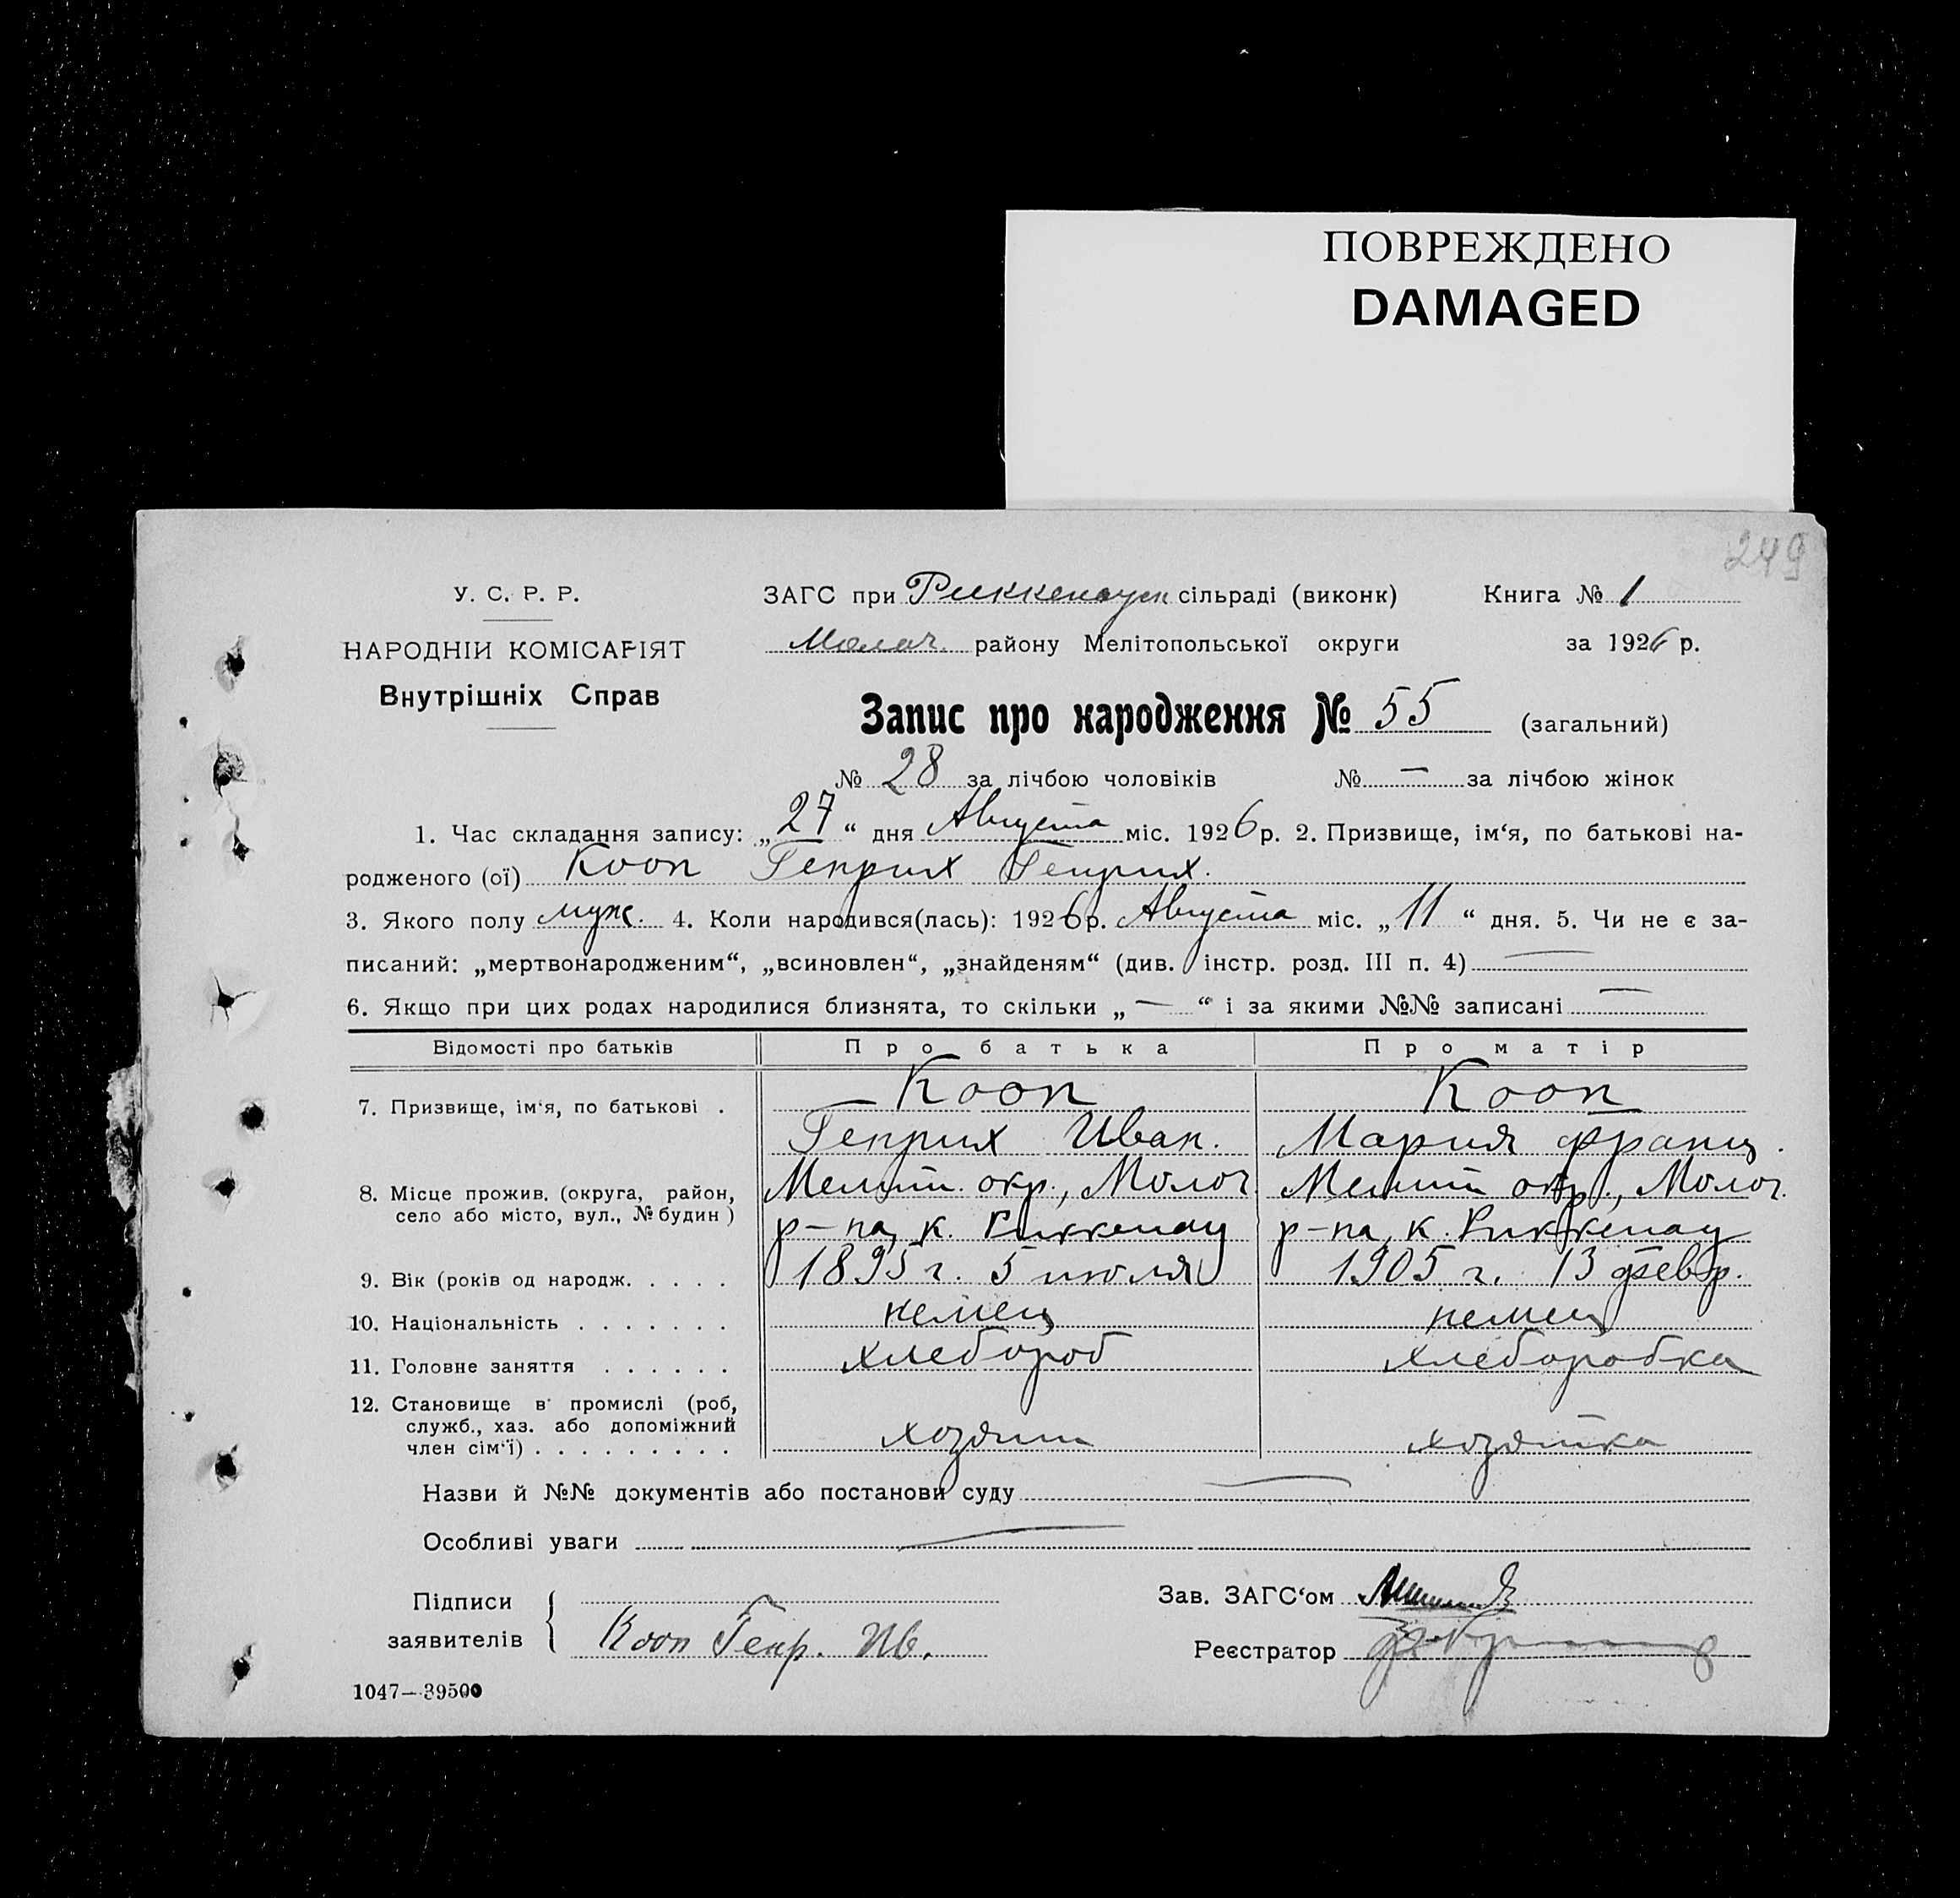 ПОВРЕЖДЕНО
DAMAGED
249
У. С. Р. Р.
ЗАГС при Риккенауск сільраді (виконк) Книга № 1
НАРОДНІЙ КОМІСАРІЯТ
Молоч. району Мелітопольської округи за 1926 р.
Внутрішніх Справ
Запис про народження № 55 (загальний)
№ 28 за лічбою чоловіків № — за лічбою жінок
1. Час складання запису: „27“ дня Августа міс. 1926 р. 2. Призвище, ім‘я, по батькові на-
родженого (ої) Кооп Генрих Генрих.
3. Якого полу муж. 4. Коли народився(лась): 1926 р. Августа міс. „11“ дня. 5. Чи не є за-
писаний: „мертвонародженим“, „всиновлен“, „знайденям“ (див. інстр. розд. III п. 4) —
6. Якщо при цих родах народилися близнята, то скільки „—“ і за якими №№ записані —
Відомості про батьків Про батька Про матір
7. Призвище, ім‘я, по батькові . Кооп Кооп
Генрих Иван. Мария Франц.
8. Місце прожив. (округа, район, село або місто, вул., № будин) Мелит. окр., Молоч. Мелит. окр., Молоч.
р-на, к. Риккенау р-на, к. Риккенау
9. Вік (років од народж. . . . . 1895 г. 5 июля 1905 г. 13 февр.
10. Національність . . . . . . . немец немец
11. Головне заняття . . . . . . хлебороб хлеборобка
12. Становище в промислі (роб,
служб., хаз. або допоміжний
член сім‘ї) . . . . . . . . . хозяин хозяйка
Назви й №№ документів або постанови суду —
Особливі уваги —
Підписи
заявителів Кооп Генр. Ив.
Зав. ЗАГС‘ом
Реєстратор
1047—39500